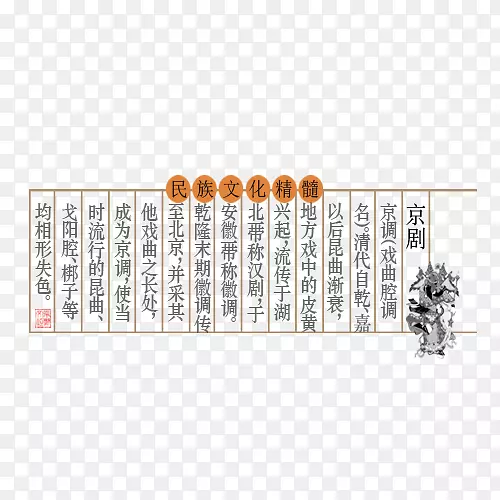 民族文化精髓
京剧
京调(戏曲腔调
名)。清代自乾、嘉
以后昆曲渐衰,
地方戏中的皮黄
兴起,流传于湖
北带称汉剧,于
安徽带称徽调。
乾隆末期徽调传
至北京,并采其
他戏曲之长处,
成为京调,使当
时流行的昆曲、
戈阳腔、梆子等
均相形失色。